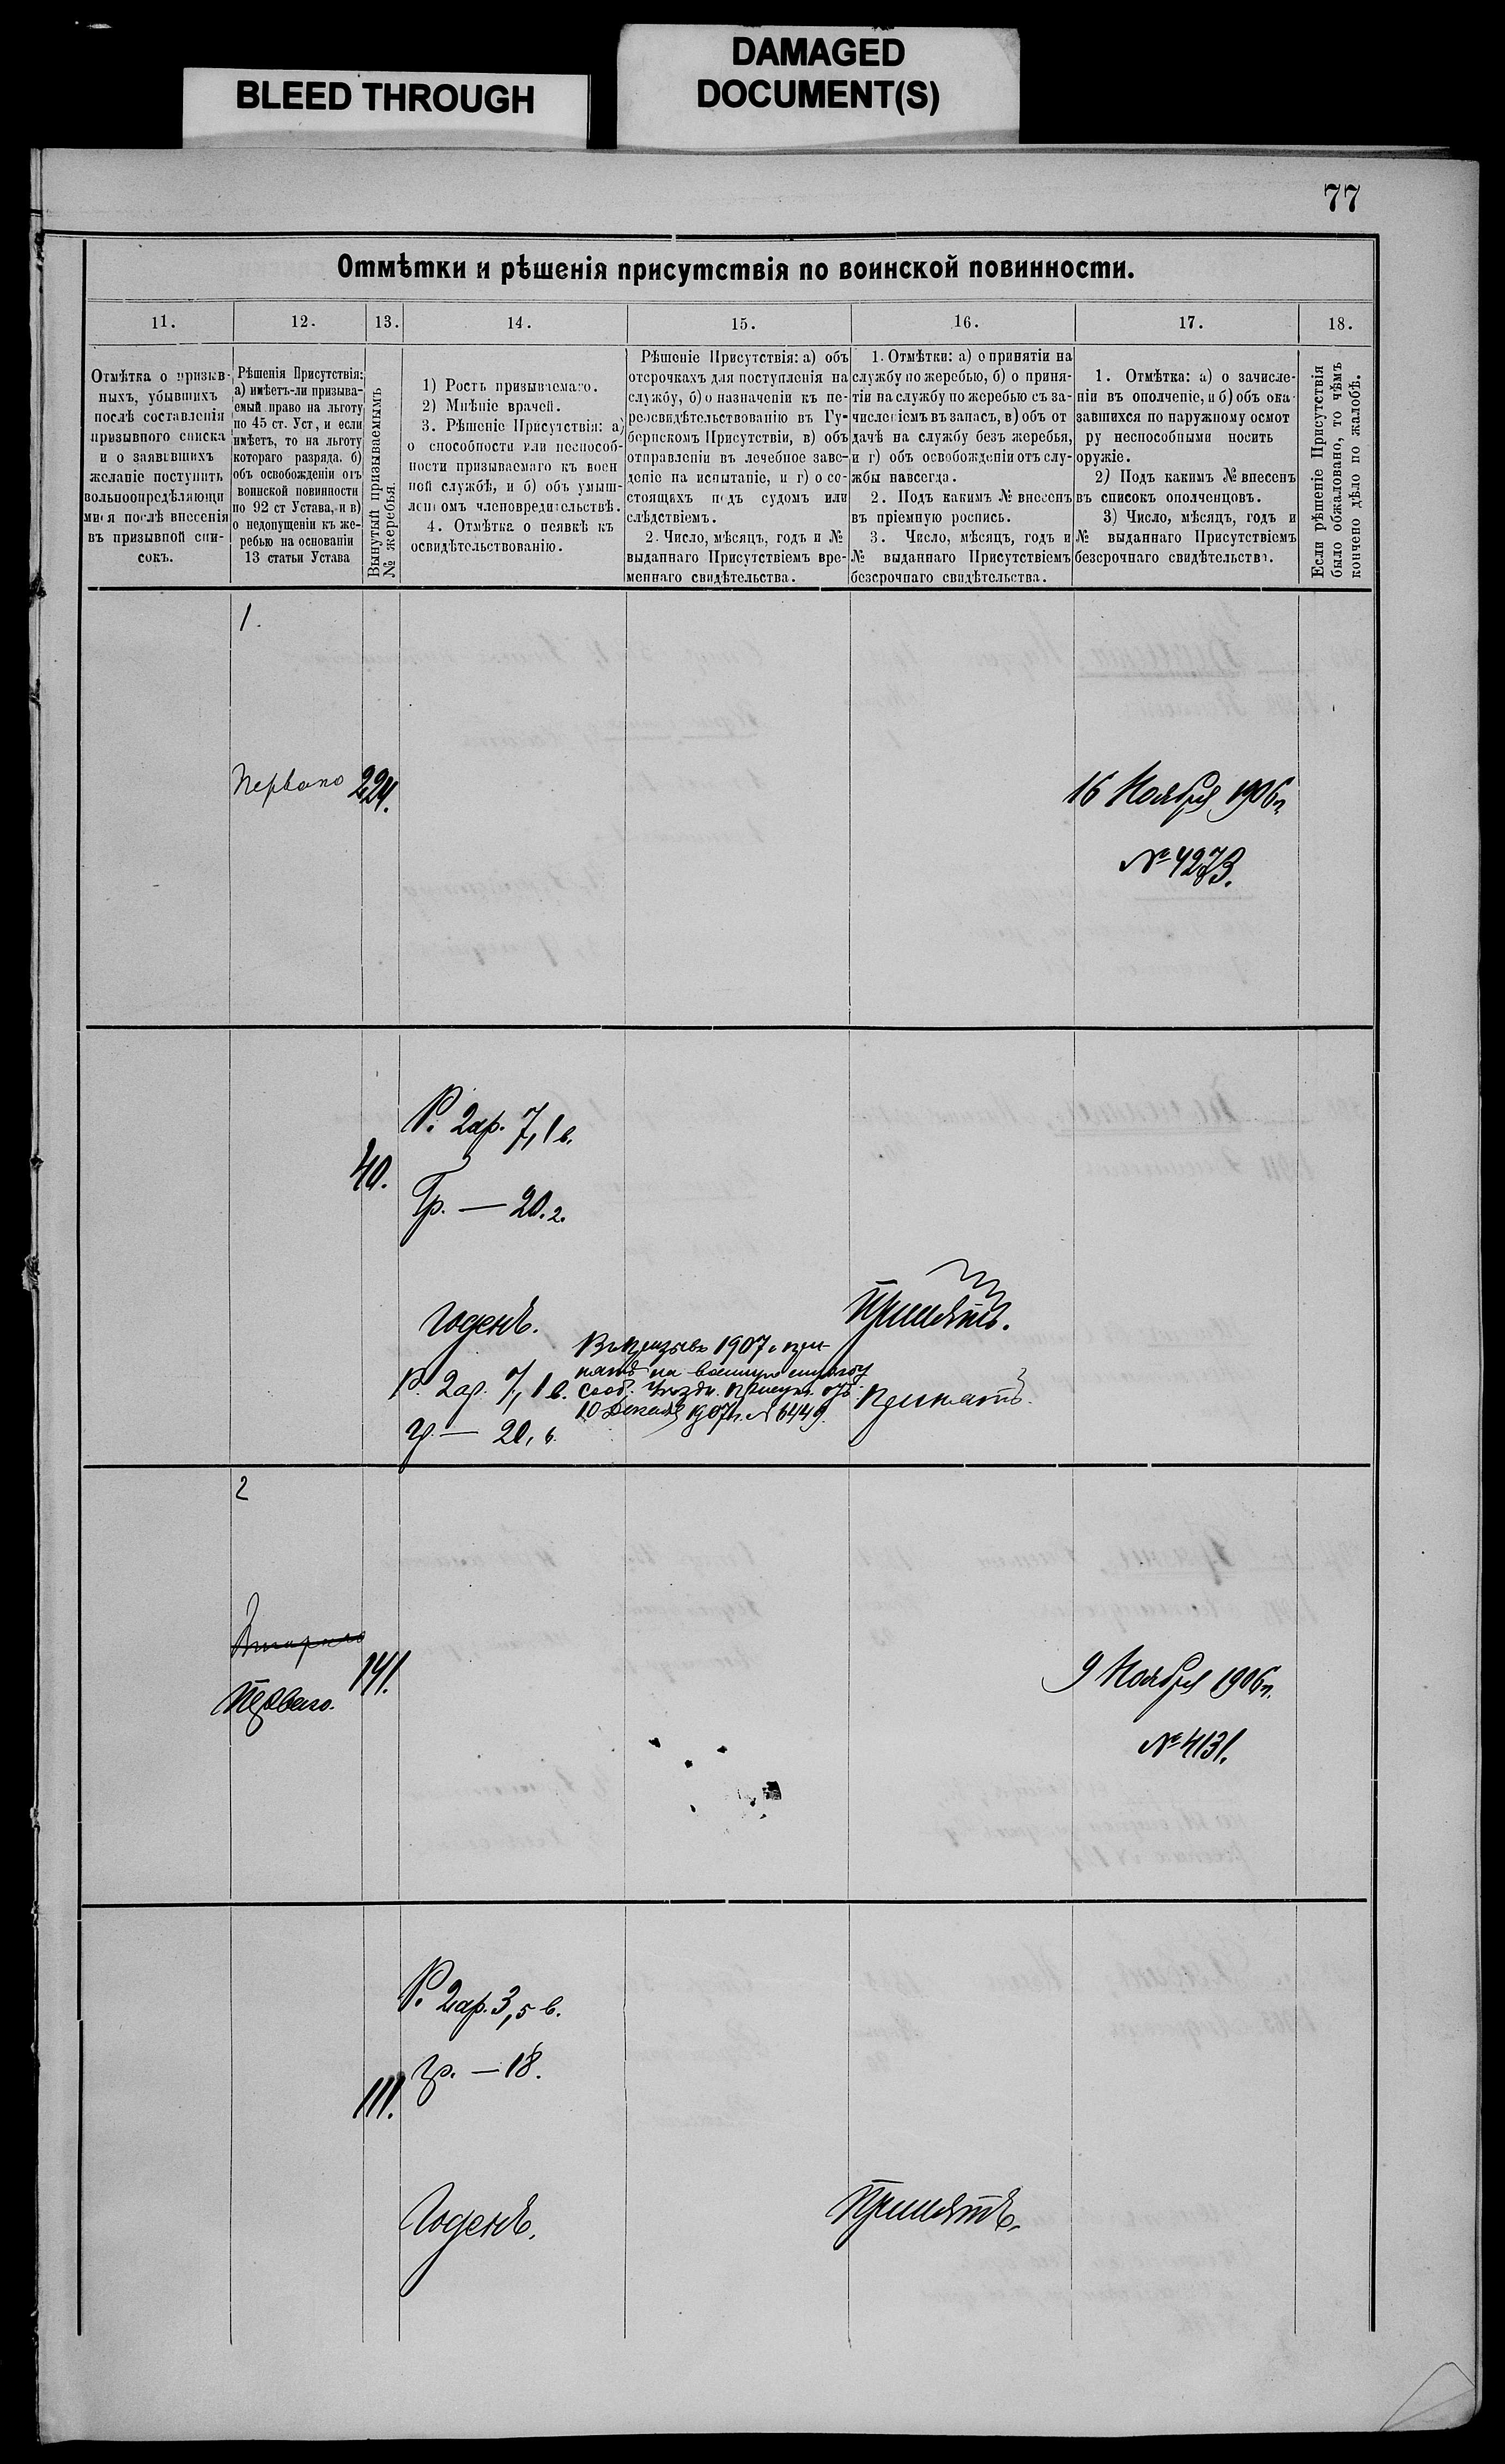 BLEED THROUGH
DAMAGED
DOCUMENT(S)
77
Отмѣтки и рѣшенія присутствія по воинской повинности.
11.
12.
13.
14.
15.
16.
17.
18.
Отмѣтка о призыв-
ныхъ, убывшихъ
послѣ составленія
призывного списка
и о заявившихъ
желаніе поступить
вольноопредѣляющи
мися послѣ внесенія
въ призывной спи-
сокъ.
Рѣшенія Присутствія:
а) имѣетъ-ли призыва-
емый право на льготу
по 45 ст. Уст, и если
имѣетъ, то на льготу
котораго разряда. б)
объ освобожденіи отъ
воинской повинности
по 92 ст Устава, и в)
о недопущеніи къ же-
ребью на основаніи
13 статьи Устава
Вынутый призываемымъ
№ жеребья.
1) Ростъ призываемаго.
2) Мнѣніе врачей.
3. Рѣшеніе Присутствія: а)
о способности или неспособ-
ности призываемаго къ воен
ной службѣ, и б) объ умыш-
ленномъ членовредительствѣ.
4. Отмѣтка о неявкѣ къ
освидѣтельствованію.
Рѣшеніе Присутствія: а) объ
отсрочкахъ для поступленія на
службу, б) о назначеніи къ пе-
реосвидѣтельствованію въ Гу-
бернскомъ Присутствіи, в) объ
отправленіи въ лечебное заве-
деніе на испытаніе, и г) о со-
стоящахъ подъ судомъ или
слѣдствіемъ.
2. Число, мѣсяцъ, годъ и №
выданнаго Присутствіемъ вре-
меннаго свидѣтельства.
1. Отмѣтки: а) о принятіи на
службу по жеребью, б) о приня-
тіи на службу по жеребью съ за-
численіемъ въ запасъ, в) объ от
дачѣ на службу безъ жеребья,
и г) объ освобожденіи отъ слу-
жбы навсегда.
2. Подъ какимъ № внесенъ
въ пріемную роспись.
3. Число, мѣсяцъ, годъ и
№ выданнаго Присутствіемъ
безсрочнаго свидѣтельства.
1. Отмѣтка: а) о зачисле-
ніи въ ополченіе, и б) объ ока-
завшихся по наружному осмот
ру неспособными носить
оружіе.
2) Подъ какимъ № внесенъ
въ списокъ ополченцовъ.
3) Число, мѣсяцъ, годъ и
№ выданнаго Присутствіемъ
безсрочнаго свидѣтельства.
Если рѣшеніе Присутствія
было обжаловано, то чѣмъ
кончено дѣло по жалобѣ.
1.
Перваго
224.
16 Ноября 1906 г.
№ 4273.
40.
Р. 2 ар. 7,1 в.
Гр. — 20.2.
Годенъ.
Принятъ.
Въ призывъ 1907 г. при-
нятъ на военную службу
сооб. Уѣздн. Присут. отъ
10 Декабря 1907 г. № 6449.
Р. 2 ар. 7,1 в.
гр. — 20, в.
Принятъ.
2
Втораго
Перваго.
141.
9 Ноября 1906 г.
№ 4131.
111.
Р. 2 ар. 3,5 в.
гр. — 18.
Годенъ.
Принятъ.